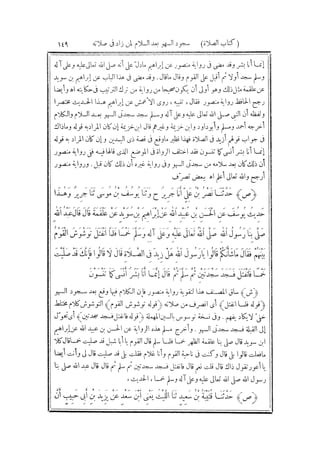 ( كتاب الصلاة ) سجود السهو بعد السلام لمن زاد فى صلاته ١٤٩
إنما أنا بشر وقد مضى فى رواية منصور عن إبراهيم مايدل على أنه صلى الله تعالى عليه وعلى آله
وسلم سجد أولا ثم أقبل على القوم وقال ماقال . وقد مضى فى هذا الباب عن إبراهيم بن سويد
عن علقمة مثل ذلك وهو أولى أن يكون صحيحا من رواية من ترك الترتيب فى حكايته اه وأيضا
رجح الحافظ رواية منصور فقال ﴿ تنبيه ﴾ روى الأعمش عن إبراهيم هذا الحديث مختصرا
ولفظه أن النبى صلى الله تعالى عليه وعلى آله وسلم سجد سجدتى السهو بعد السلام والكلام
أخرجه أحمد ومسلم وأبوداود وابن خزيمة وغيرهم قال ابن خزيمة إن كان المراد به قوله وماذاك
فى جواب قولهم أزيد فى الصلاة فهذا نظير ماوقع فى قصة ذى اليدين . وإن كان المراد به قوله
إنما أنا بشر أنسى كما تنسون فقد اختلف الرواة فى الموضع الذى قالها فيه ففى رواية منصور
أن ذلك كان بعد سلامه من سجدتى السهو وفى رواية غيره أن ذلك كان قبل . ورواية منصور
أرجح والله تعالى أعلم اه ببعض تصرف
﴿ص﴾ حَدَّثَنَا نَصْرُ بْنُ عَلِيٍّ أَنَا جَرِيرٌ ح وَنَا يُوسُفُ بْنُ مُوسَى نَا جَرِيرٌ وَهَذَا
حَدِيثُ يُوسُفَ عَنِ الْحَسَنِ بْنِ عُبَيْدِ اللهِ عَنْ إِبْرَاهِيمَ بْنِ سُوَيْدٍ عَنْ عَلْقَمَةَ قَالَ قَالَ عَبْدُ اللهِ
صَلَّى بِنَا رَسُولُ اللهِ صَلَّى اللهُ تَعَالَى عَلَيْهِ وَعَلَى آلِهِ وَسَلَّمَ خَمْسًا فَلَمَّا انْفَتَلَ تَوَشْوَشَ الْقَوْمُ
بَيْنَهُمْ فَقَالَ مَا شَأْنُكُمْ قَالُوا يَا رَسُولَ اللهِ هَلْ زِيدَ فِى الصَّلَاةِ قَالَ لَا قَالُوا فَإِنَّكَ قَدْ صَلَّيْتَ
خَمْسًا فَانْفَتَلَ فَسَجَدَ سَجْدَتَيْنِ ثُمَّ سَلَّمَ ثُمَّ قَالَ إِنَّمَا أَنَا بَشَرٌ أَنْسَى كَمَا تَنْسَوْنَ
﴿ش﴾ ساق المصنف هذا لتقوية رواية منصور فإن الكلام فيها وقع بعد سجود السهو
﴿قوله فلما انفتل﴾ أى انصرف من صلاته ﴿قوله توشوش القوم﴾ التوشوش كلام مختلط
خفى لا يكاد يفهم . وفى نسخة توسوس بالسين المهملة ﴿قوله فانفتل فسجد سجدتين﴾ أى تحول
إلى القبلة فسجد سجدتى السهو . وأخرج مسلم هذه الرواية عن الحسن بن عبيد الله عن إبراهيم
ابن سويد قال صلى بنا علقمة الظهر خمسا فلما سلم قال القوم يا أبا شبل قد صليت خمسا قال كلا
مافعلت قالوا بلى قال وكنت فى ناحية القوم وأنا غلام فقلت بلى قد صليت خمسا قال لى وأنت أيضا
يا أعور تقول ذاك قال قلت نعم قال فانفتل فسجد سجدتين ثم سلم ثم قال قال عبد الله صلى بنا
رسول الله صلى الله تعالى عليه وعلى آله وسلم خمسا . الحديث .
﴿ص﴾ حَدَّثَنَا قُتَيْبَةُ بْنُ سَعِيدٍ نَا اللَّيْثُ يَعْنِى ابْنَ سَعْدٍ عَنْ يَزِيدَ بْنِ أَبِى حَبِيبٍ أَنَّ